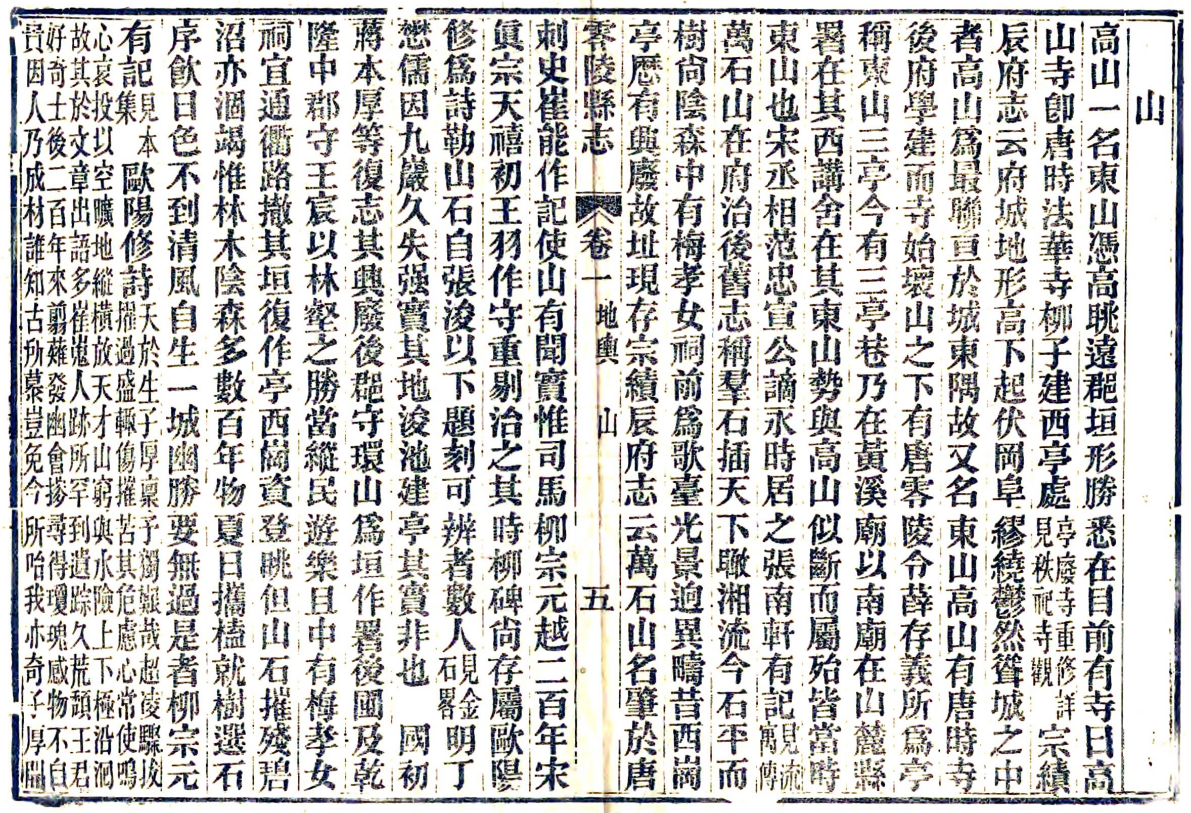 山
高山一名東山憑高眺遠郡垣形勝悉在目前有寺曰高
山寺卽唐時法華寺柳子建西亭處亭廢寺重修詳見秩祀寺觀宗績
辰府志云府城地形高下起伏岡阜繆繞鬱然聳城之中
者高山爲最聯亘於城東隅故又名東山高山有唐時寺
後府學建而寺始壞山之下有唐零陵令薛存義所爲亭
稱東山三亭今有三亭巷乃在黃溪廟以南廟在山麓縣
署在其西講舍在其東山勢與高山似斷而屬殆皆當時
東山也宋丞相范忠宣公謫永時居之張南軒有記見流寓傳
萬石山在府治後舊志稱羣石插天下瞰湘流今石平而
樹尙陰森中有梅孝女祠前爲歌臺光景逈異疇昔西崗
亭歷有興廢故址現存宗績辰府志云萬石山名肇於唐
零陵縣志 卷一 地輿 山 五
刺史崔能作記使山有聞實惟司馬柳宗元越二百年宋
眞宗天禧初王羽作守重剔治之其時柳碑尙存屬歐陽
修爲詩勒山石自張浚以下題刻可辨者數人見金石畧明丁
懋儒因九巖久失强實其地浚池建亭其實非也 國初
蔣本厚等復志其興廢後郡守環山爲垣作署後圃及乾
隆中郡守王宸以林壑之勝當縱民遊樂且中有梅孝女
祠宜通衢路撤其垣復作亭西崗資登眺但山石摧殘碧
沼亦涸竭惟林木陰森多數百年物夏日攜榼就樹選石
序飮日色不到清風自生一城幽勝要無過是者柳宗元
有記見本集歐陽修詩天於生子厚稟予獨艱哉超凌驟拔擢過盛輒傷摧苦其危慮心常使鳴
心哀投以空曠地縱橫放天才山窮與水險上下極沿洄故其於文章出語多崔嵬人跡所罕到遺踪久荒頽王君
好奇士後二百年來翦薙發幽會搒尋得瓊瑰感物不自貴因人乃成材誰知古所慕豈免今所咍我亦奇子厚開